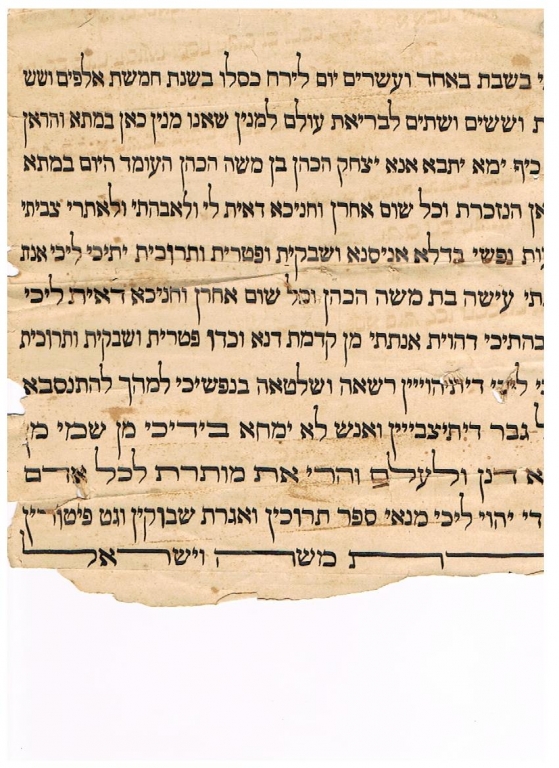 בשבת באחד ועשרים יום לירח כסלו בשנת חמשת אלפים ושש
וששים ושתים לבריאת עולם למנין שאנו מנין כאן במתא והראן
כיף ימא יתבא אנא יצחק הכהן בן משה הכהן העומד היום במתא
הנזכרת וכל שום אחרן וחניכא דאית לי ולאבהתי ולאתרי צביתי
נפשי בדלא אניסנא ושבקית ופטרית ותרוכית יתיכי ליכי אנת
עישה בת משה הכהן וכל שום אחרן וחניכא דאית ליכי
דהוית אנתתי מן קדמת דנא וכדן פטרית ושבקית ותרוכית
דיתיהוייין רשאה ושלטאה בנפשיכי למהך להתנסבא
גבר דיתיצבייין ואנש לא ימחא בידיכי מן שמי מן
דנן ולעלם והרי את מותרת לכל אדם
די יהוי ליכי מנאי ספר תרוכין ואגרת שבוקין וגט פיטורין
משה וישראל